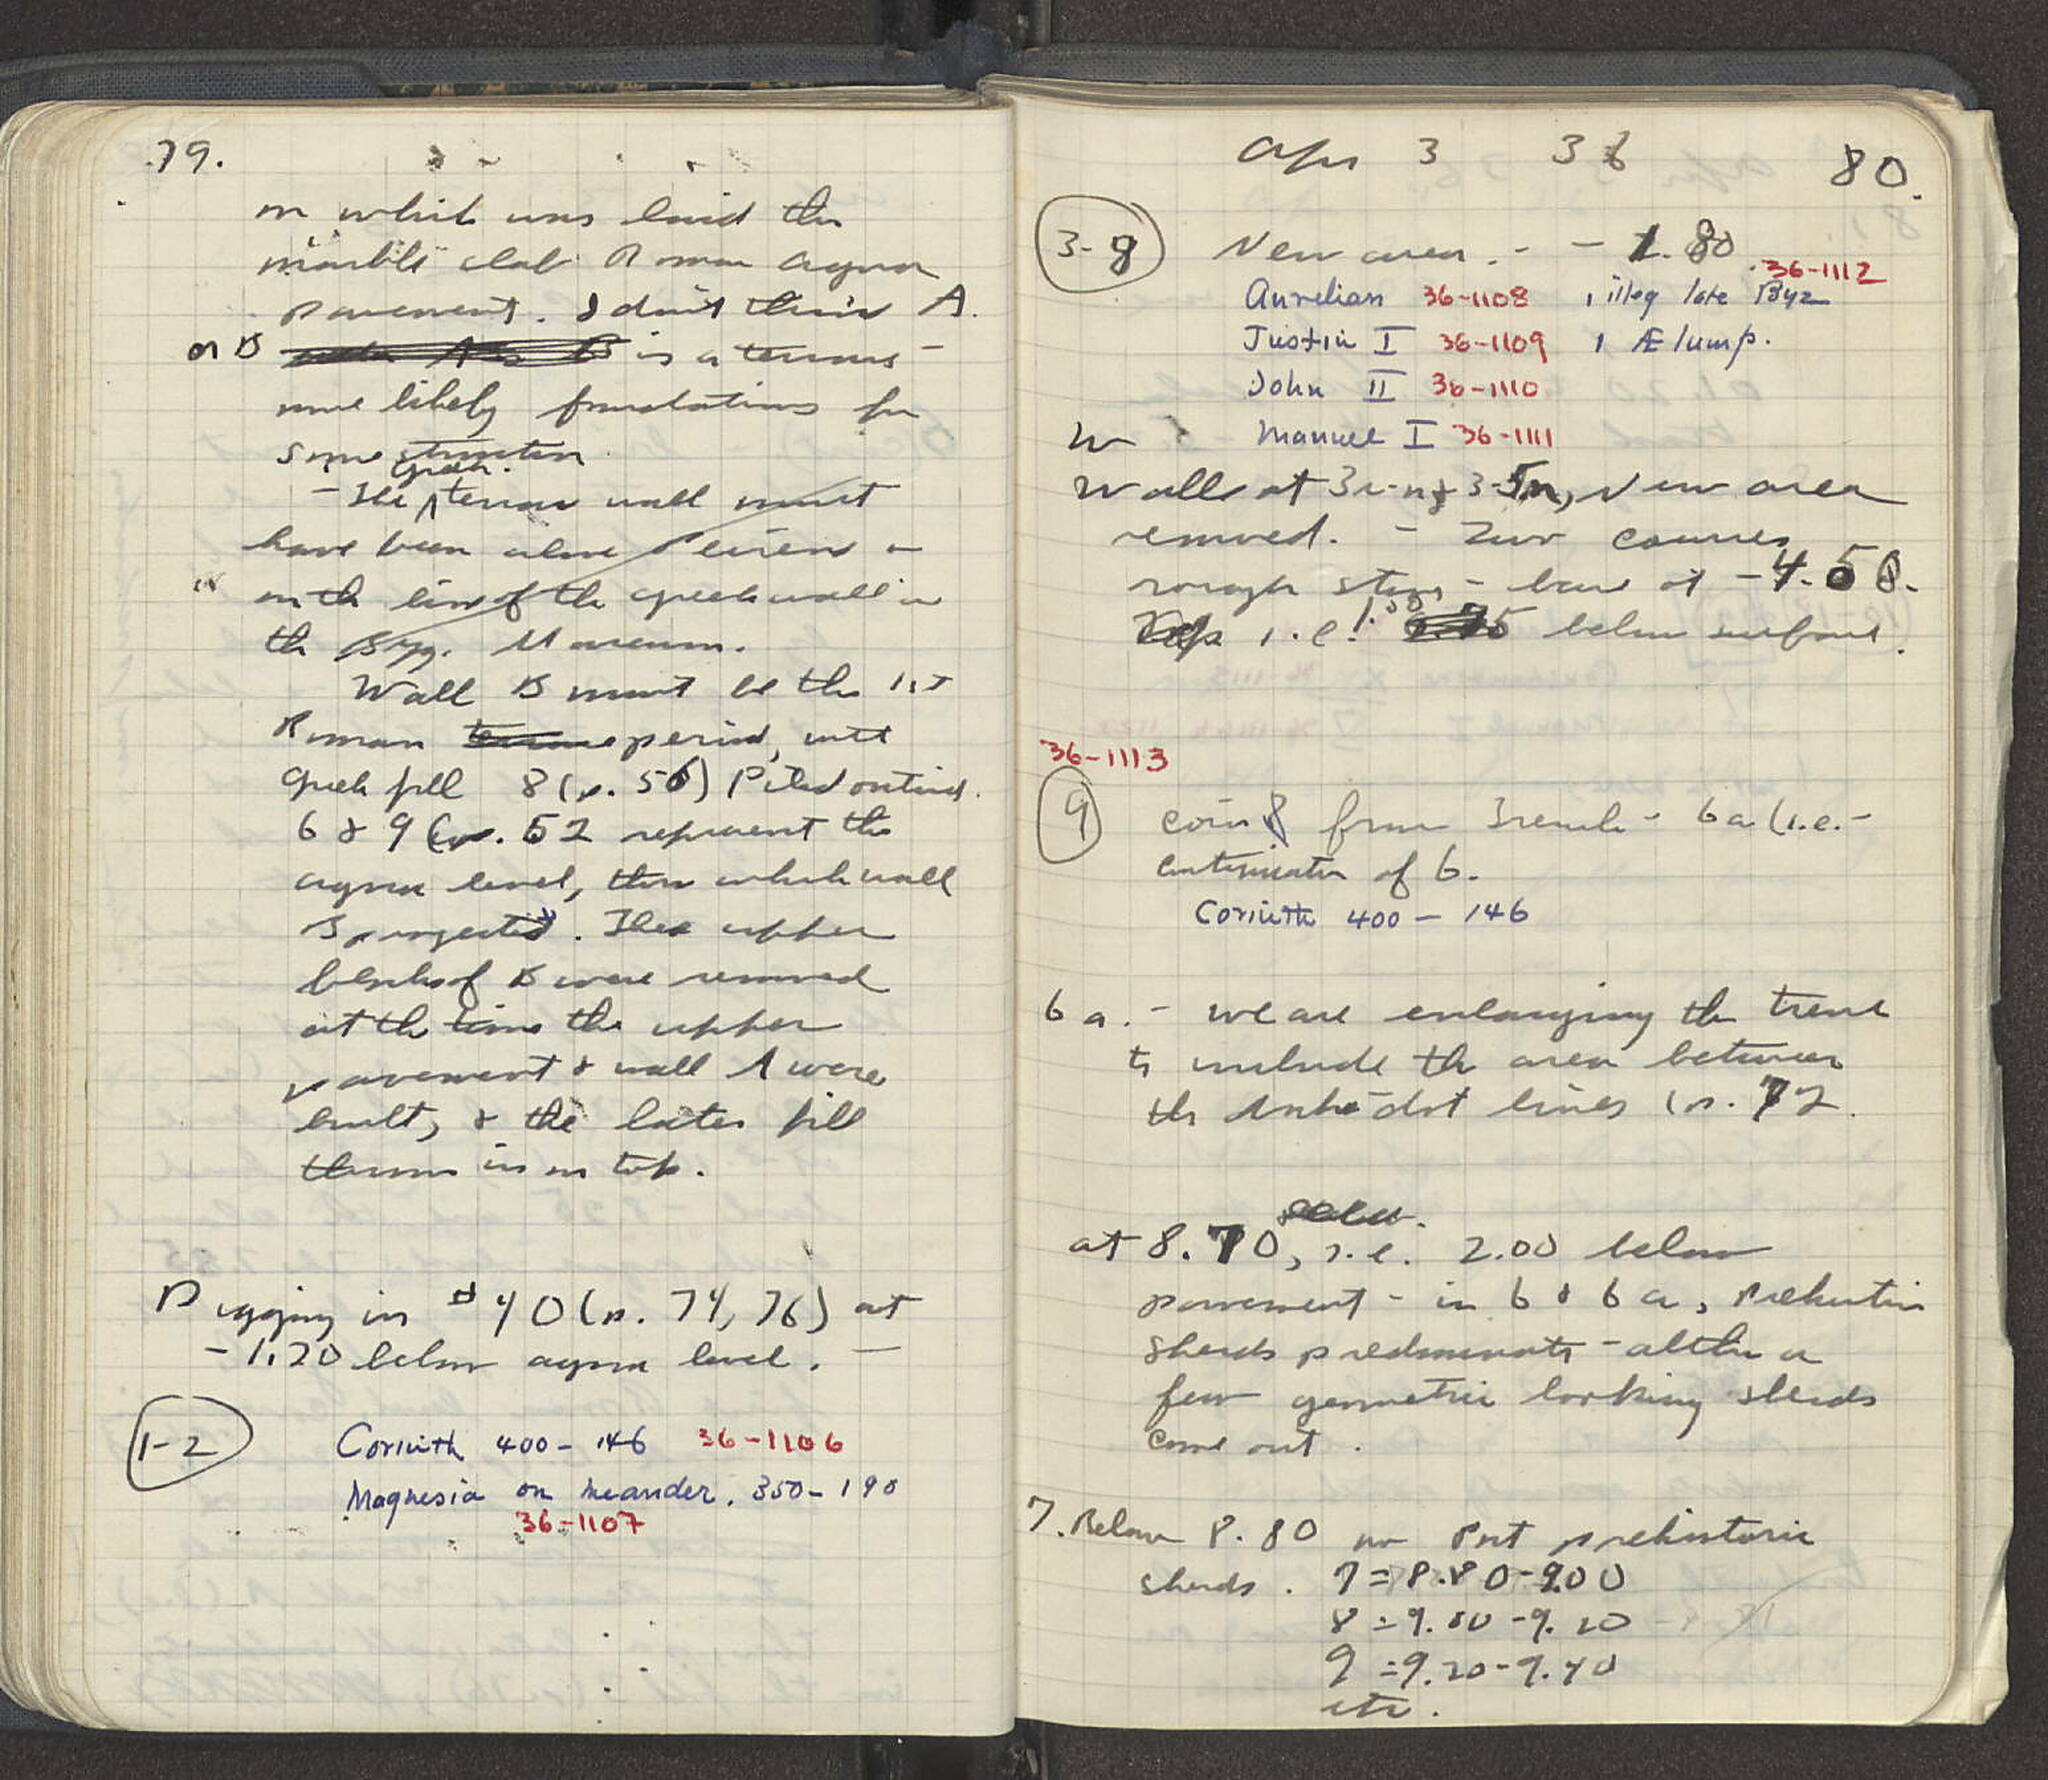 79.
on which was laid the
marble slab Roman agora
pavement. I don't think A.
or B is a terrace -
more likely foundations for
some structure.
- The Greek terrace wall must
have been above Peirene -
on the line of the Greek wall in
the Byz. Museum.
Wall B must be the 1st
Roman period, with
Greek fill 8 (p. 56) Piled outside.
6 & 9 (p. 52 represent the
agora level, then which wall
B projected. The upper
blocks of B were removed
at the time the upper
pavement & wall A were
built, & the later fill
thrown in on top.
Digging in # 40 (p. 74, 76) at
- 1.20 below agora level. -
1-2
Corinth 400 - 146 36-1106
Magnesia on Meander. 350 - 190
36-1107
Apr 3 36
80.
3-8 New area. - - 1.80
36-1112
Aurelian 36-1108 1 illeg late Byz
Justin I 36-1109 1 Æ lump.
John II 36-1110
Manuel I 36-1111
W
Walls at New area
removed. - Two courses
rough stones - base at - 4.58.
i.e. 1.58 below surface.
36-1113
9 coin from Trench - 6a (i.e. -
continuation of 6.
Corinth 400 - 146
6a. - we are enlarging the trench
to include the area between
the dot lines (p. 72.
at 8.70, i.e. 2.00 below
pavement - in 6 & 6a, Prehistoric
sherds predominate - altho a
few geometric looking sherds
come out.
7. Below 8.80 no Post prehistoric
sherds. 7 = 8.80 - 9.00
8 = 9.00 - 9.20
9 = 9.20 - 9.40
etc.